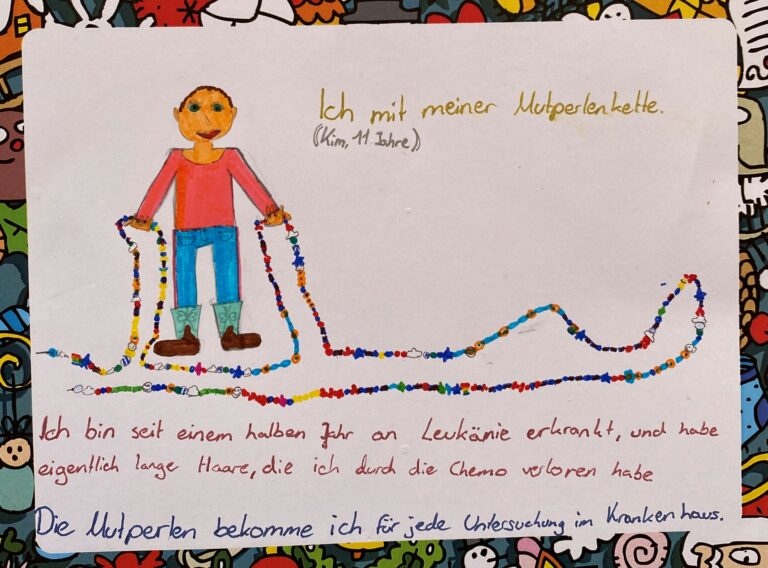 Ich mit meiner Mutperlenkette.
(Kim, 11 Jahre))
Ich bin seit einem halben Jahr an Leukänie erkrankt, und habe
eigentlich lange Haare, die ich durch die Chemo verloren habe
Die Mutperlen bekomme ich für jede Untersuchung im Krankenhaus.